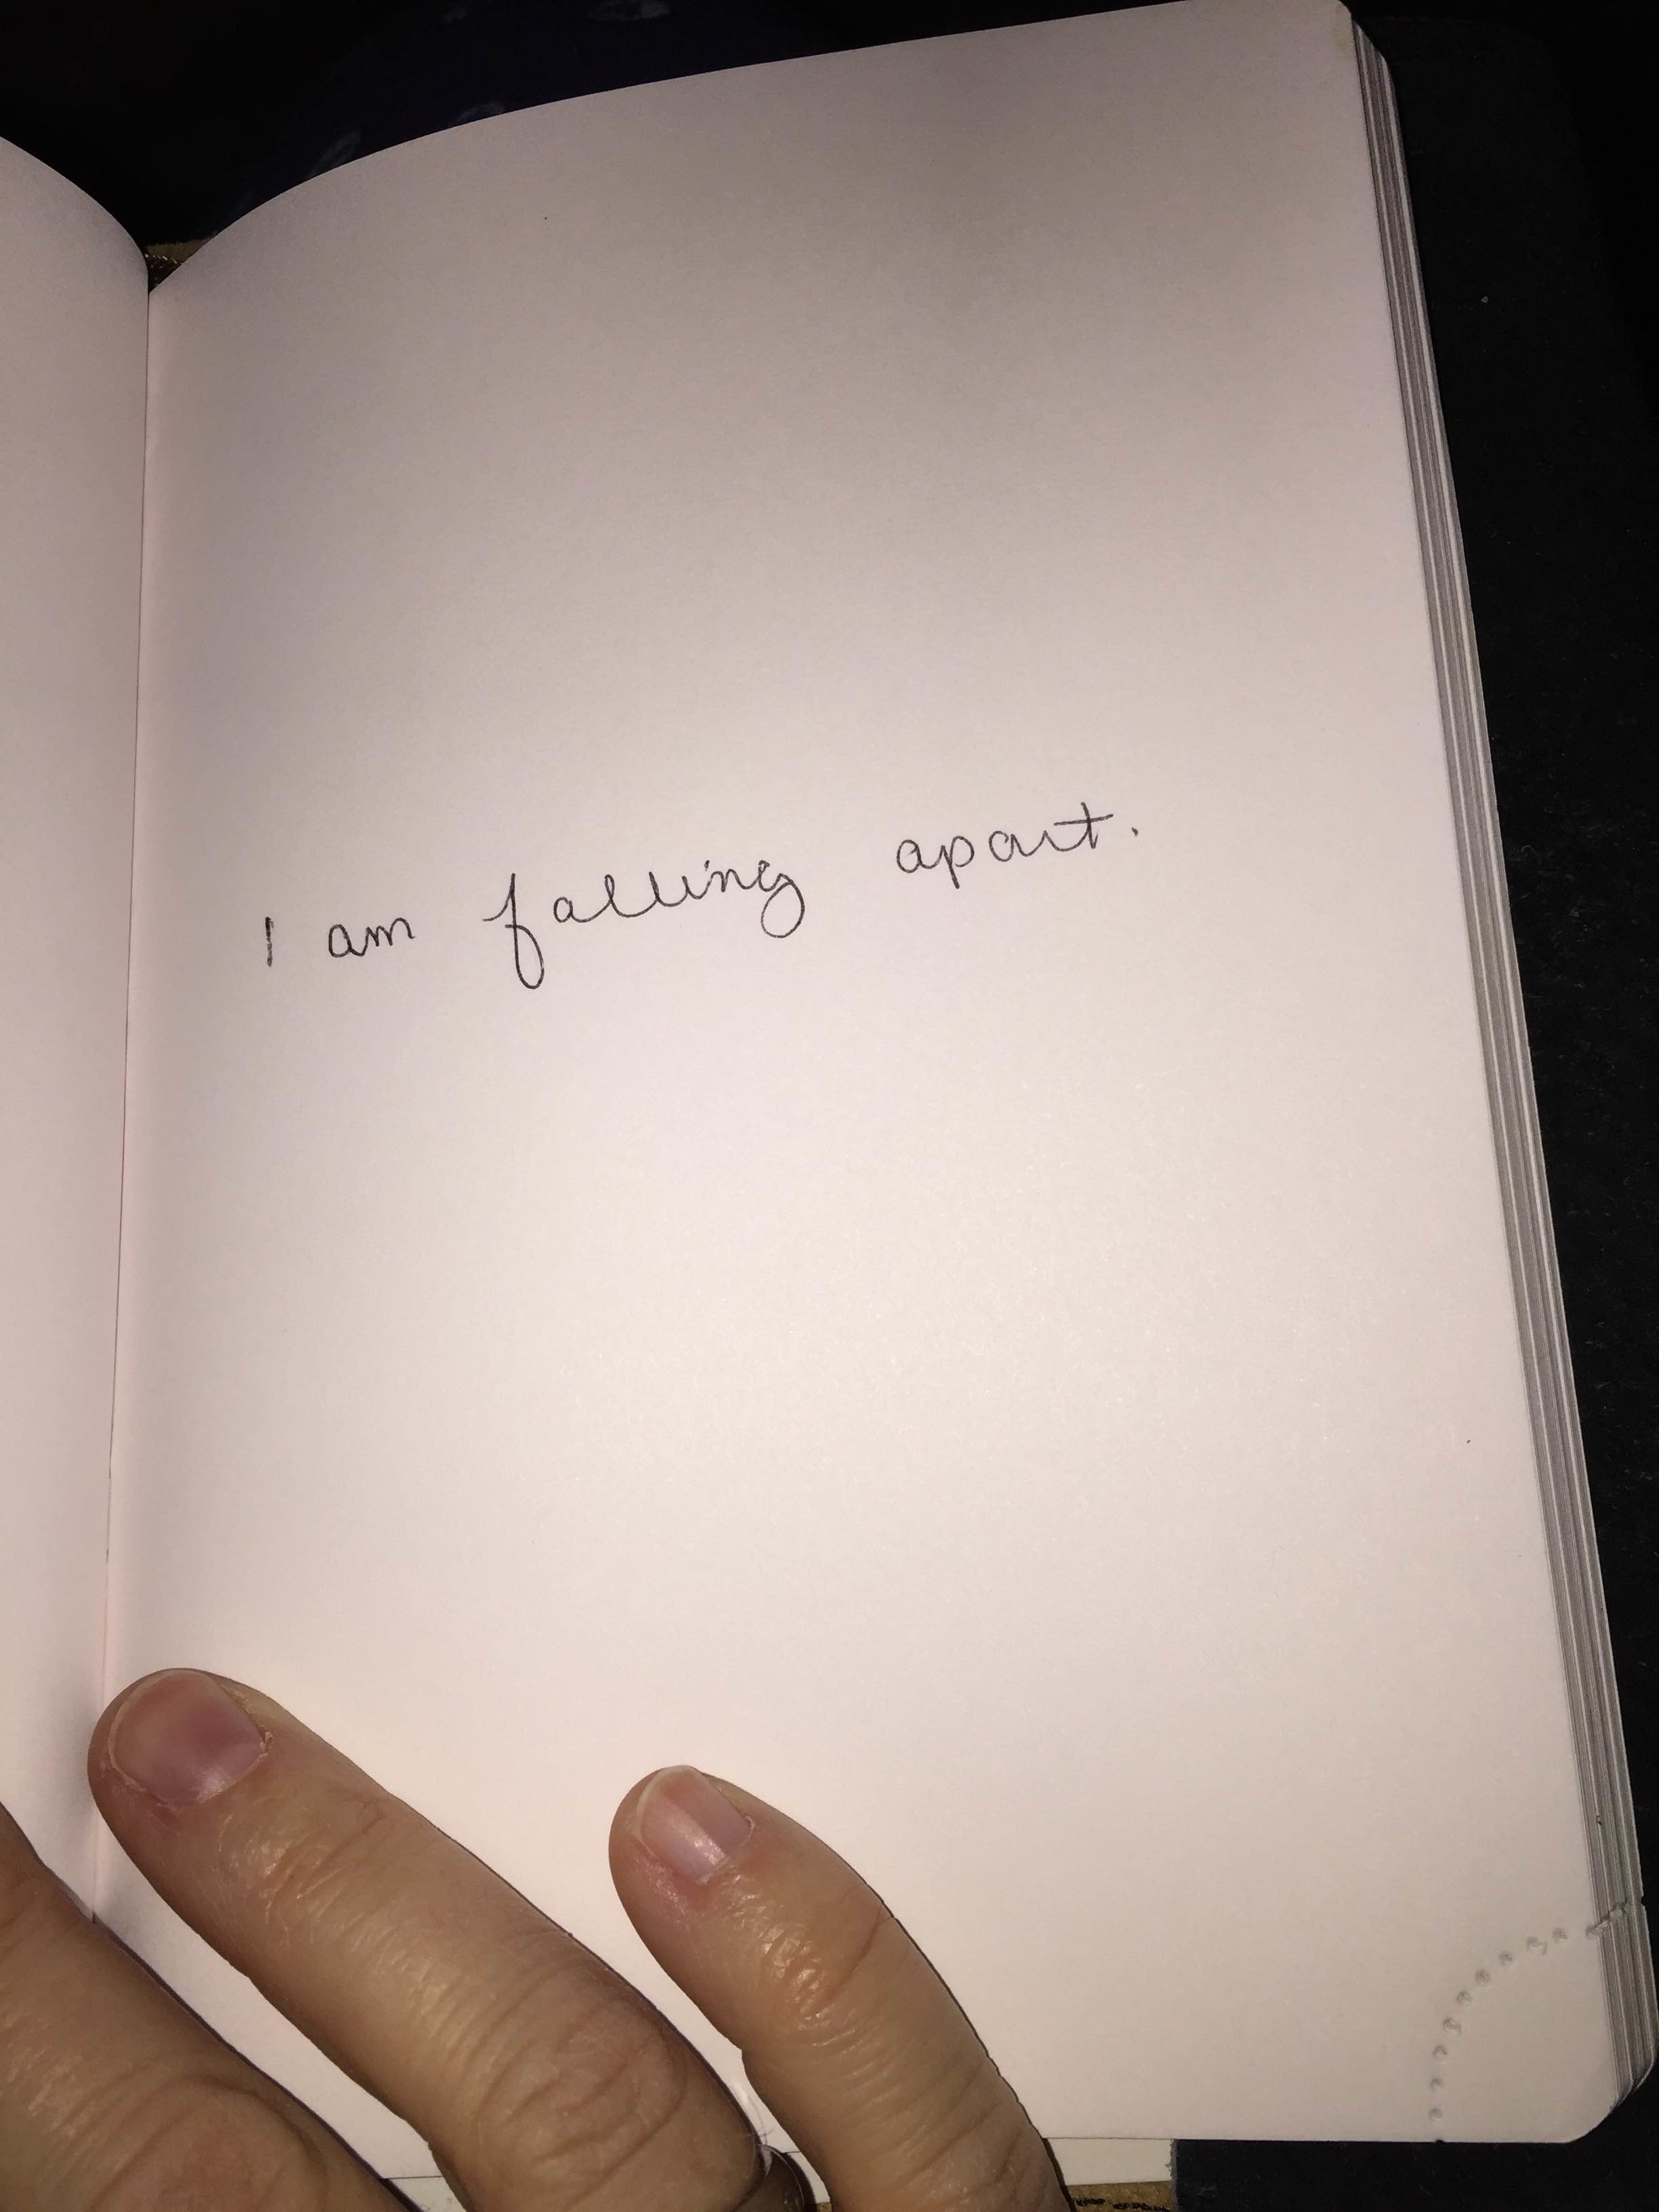 I am falling apart.